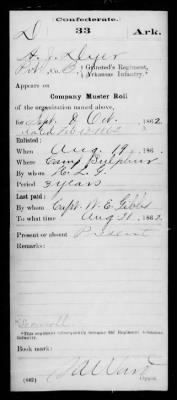 Confederate.
D 33 Ark.
A. J. Dyer
Pvt, Co. B, Grinsted's Regiment,
Arkansas Infantry.
Appears on
Company Muster Roll
of the organization named above,
for Sept & Oct., 1862.
dated Feb 1863
Enlisted:
When Aug 19, 186
Where Camp Sulphur
By whom
Period 3 years
Last paid:
By whom Capt. W. E. Gibbs
To what time Aug 31, 1862.
Present or absent Present
Remarks:
*This regiment subsequently became 33d Regiment Arkansas
Infantry.
Book mark:
(642) Copyist.